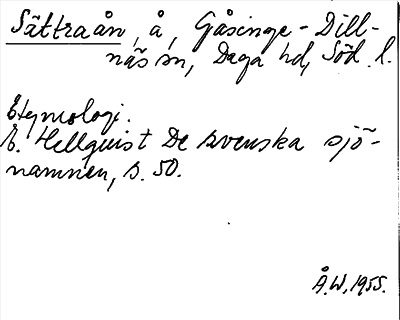 Sättraån, å, Gåsinge-Dill-
näs sn, Daga hd, Söd. l.
Etymologi.
E. Hellquist De svenska sjö-
namnen, s. 50.
Å.W, 1955.